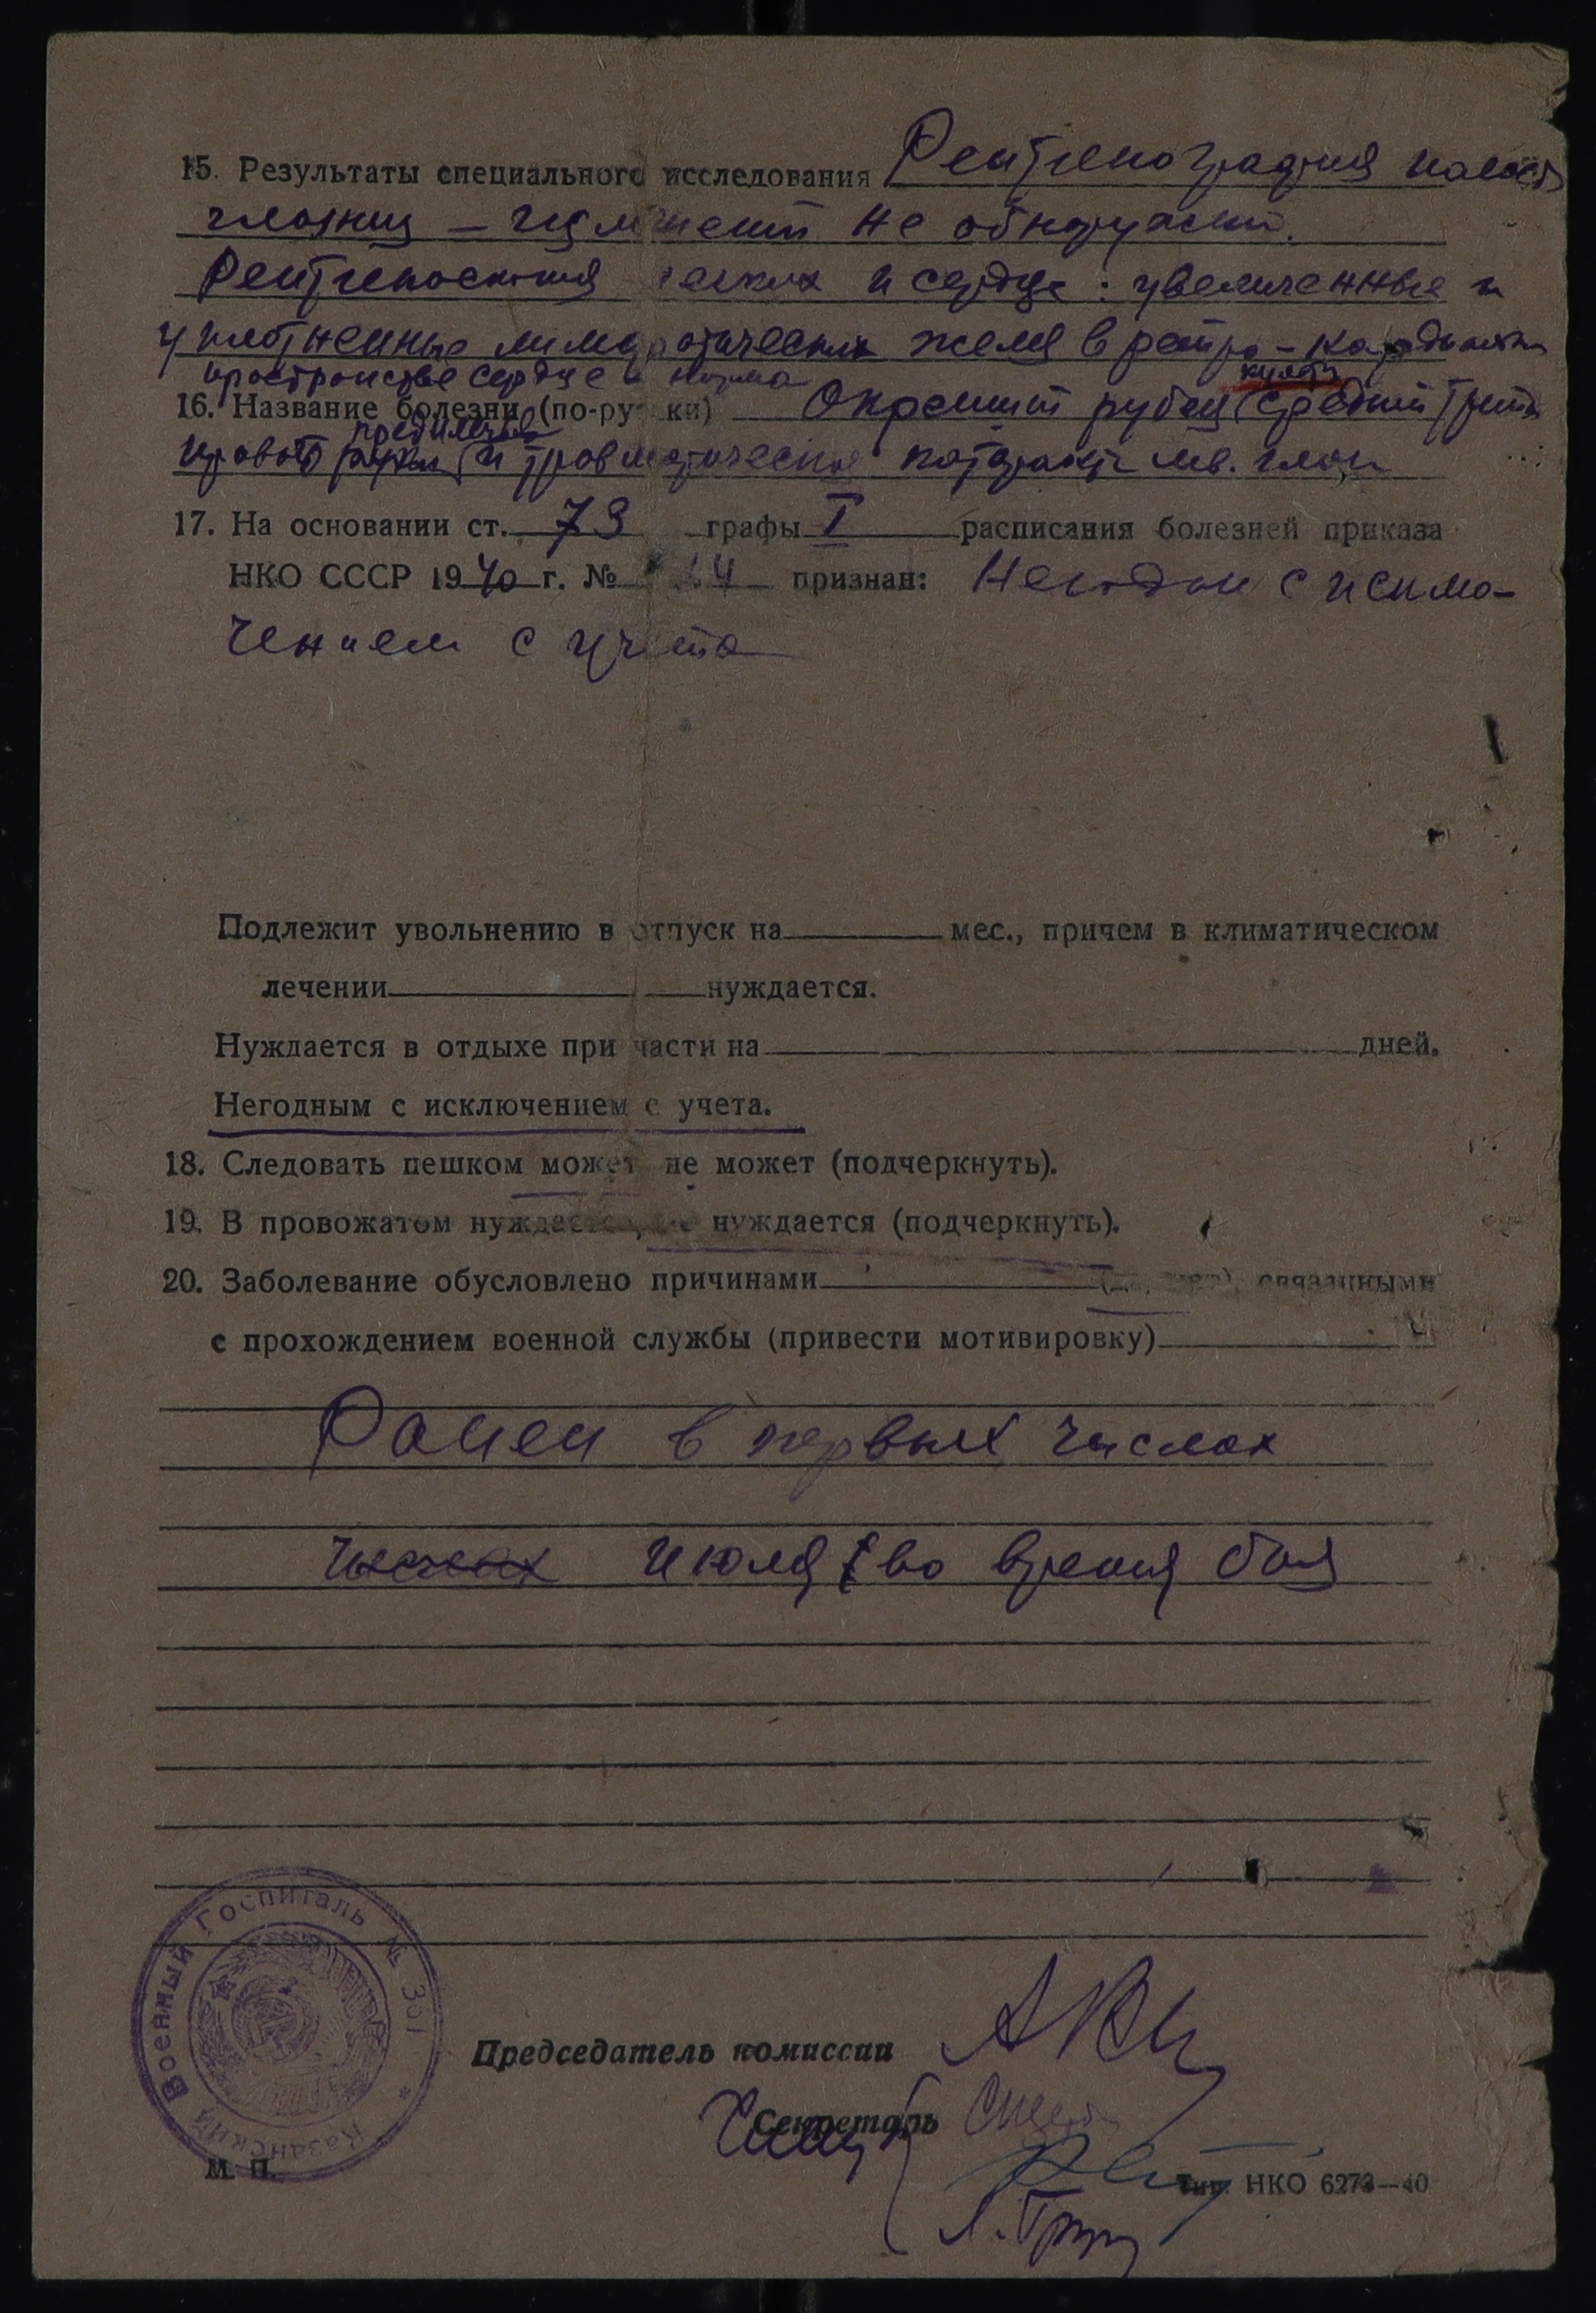 15. Результаты специального исследования Рентгенография
глазниц — не обнаружено.
Рентгеноскопия легких и сердца: увеличенные и
уплотненные лимфатические желез в ретро-кардиальн
пространстве сердце норма
культи
16. Название болезни (по-русски) Окрепший рубец (средний трети
предплечья
правого руки) и травматическая катаракта лв. глаза
17. На основании ст. 73 графы I расписания болезней приказа
НКО СССР 1940 г. № признан: Негоден с исклю-
чением с учета
Подлежит увольнению в отпуск на мес., причем в климатическом
лечении нуждается.
Нуждается в отдыхе при части на дней.
Негодным с исключением с учета.
18. Следовать пешком может не может (подчеркнуть).
19. В провожатом нуждается, не нуждается (подчеркнуть).
20. Заболевание обусловлено причинами связанными
с прохождением военной службы (привести мотивировку)
Ранен в первых числах
числах июля во время боя
Казанский Военный Госпиталь № 361
Председатель комиссии
Секретарь
М. П.
Тип. НКО 6273—40